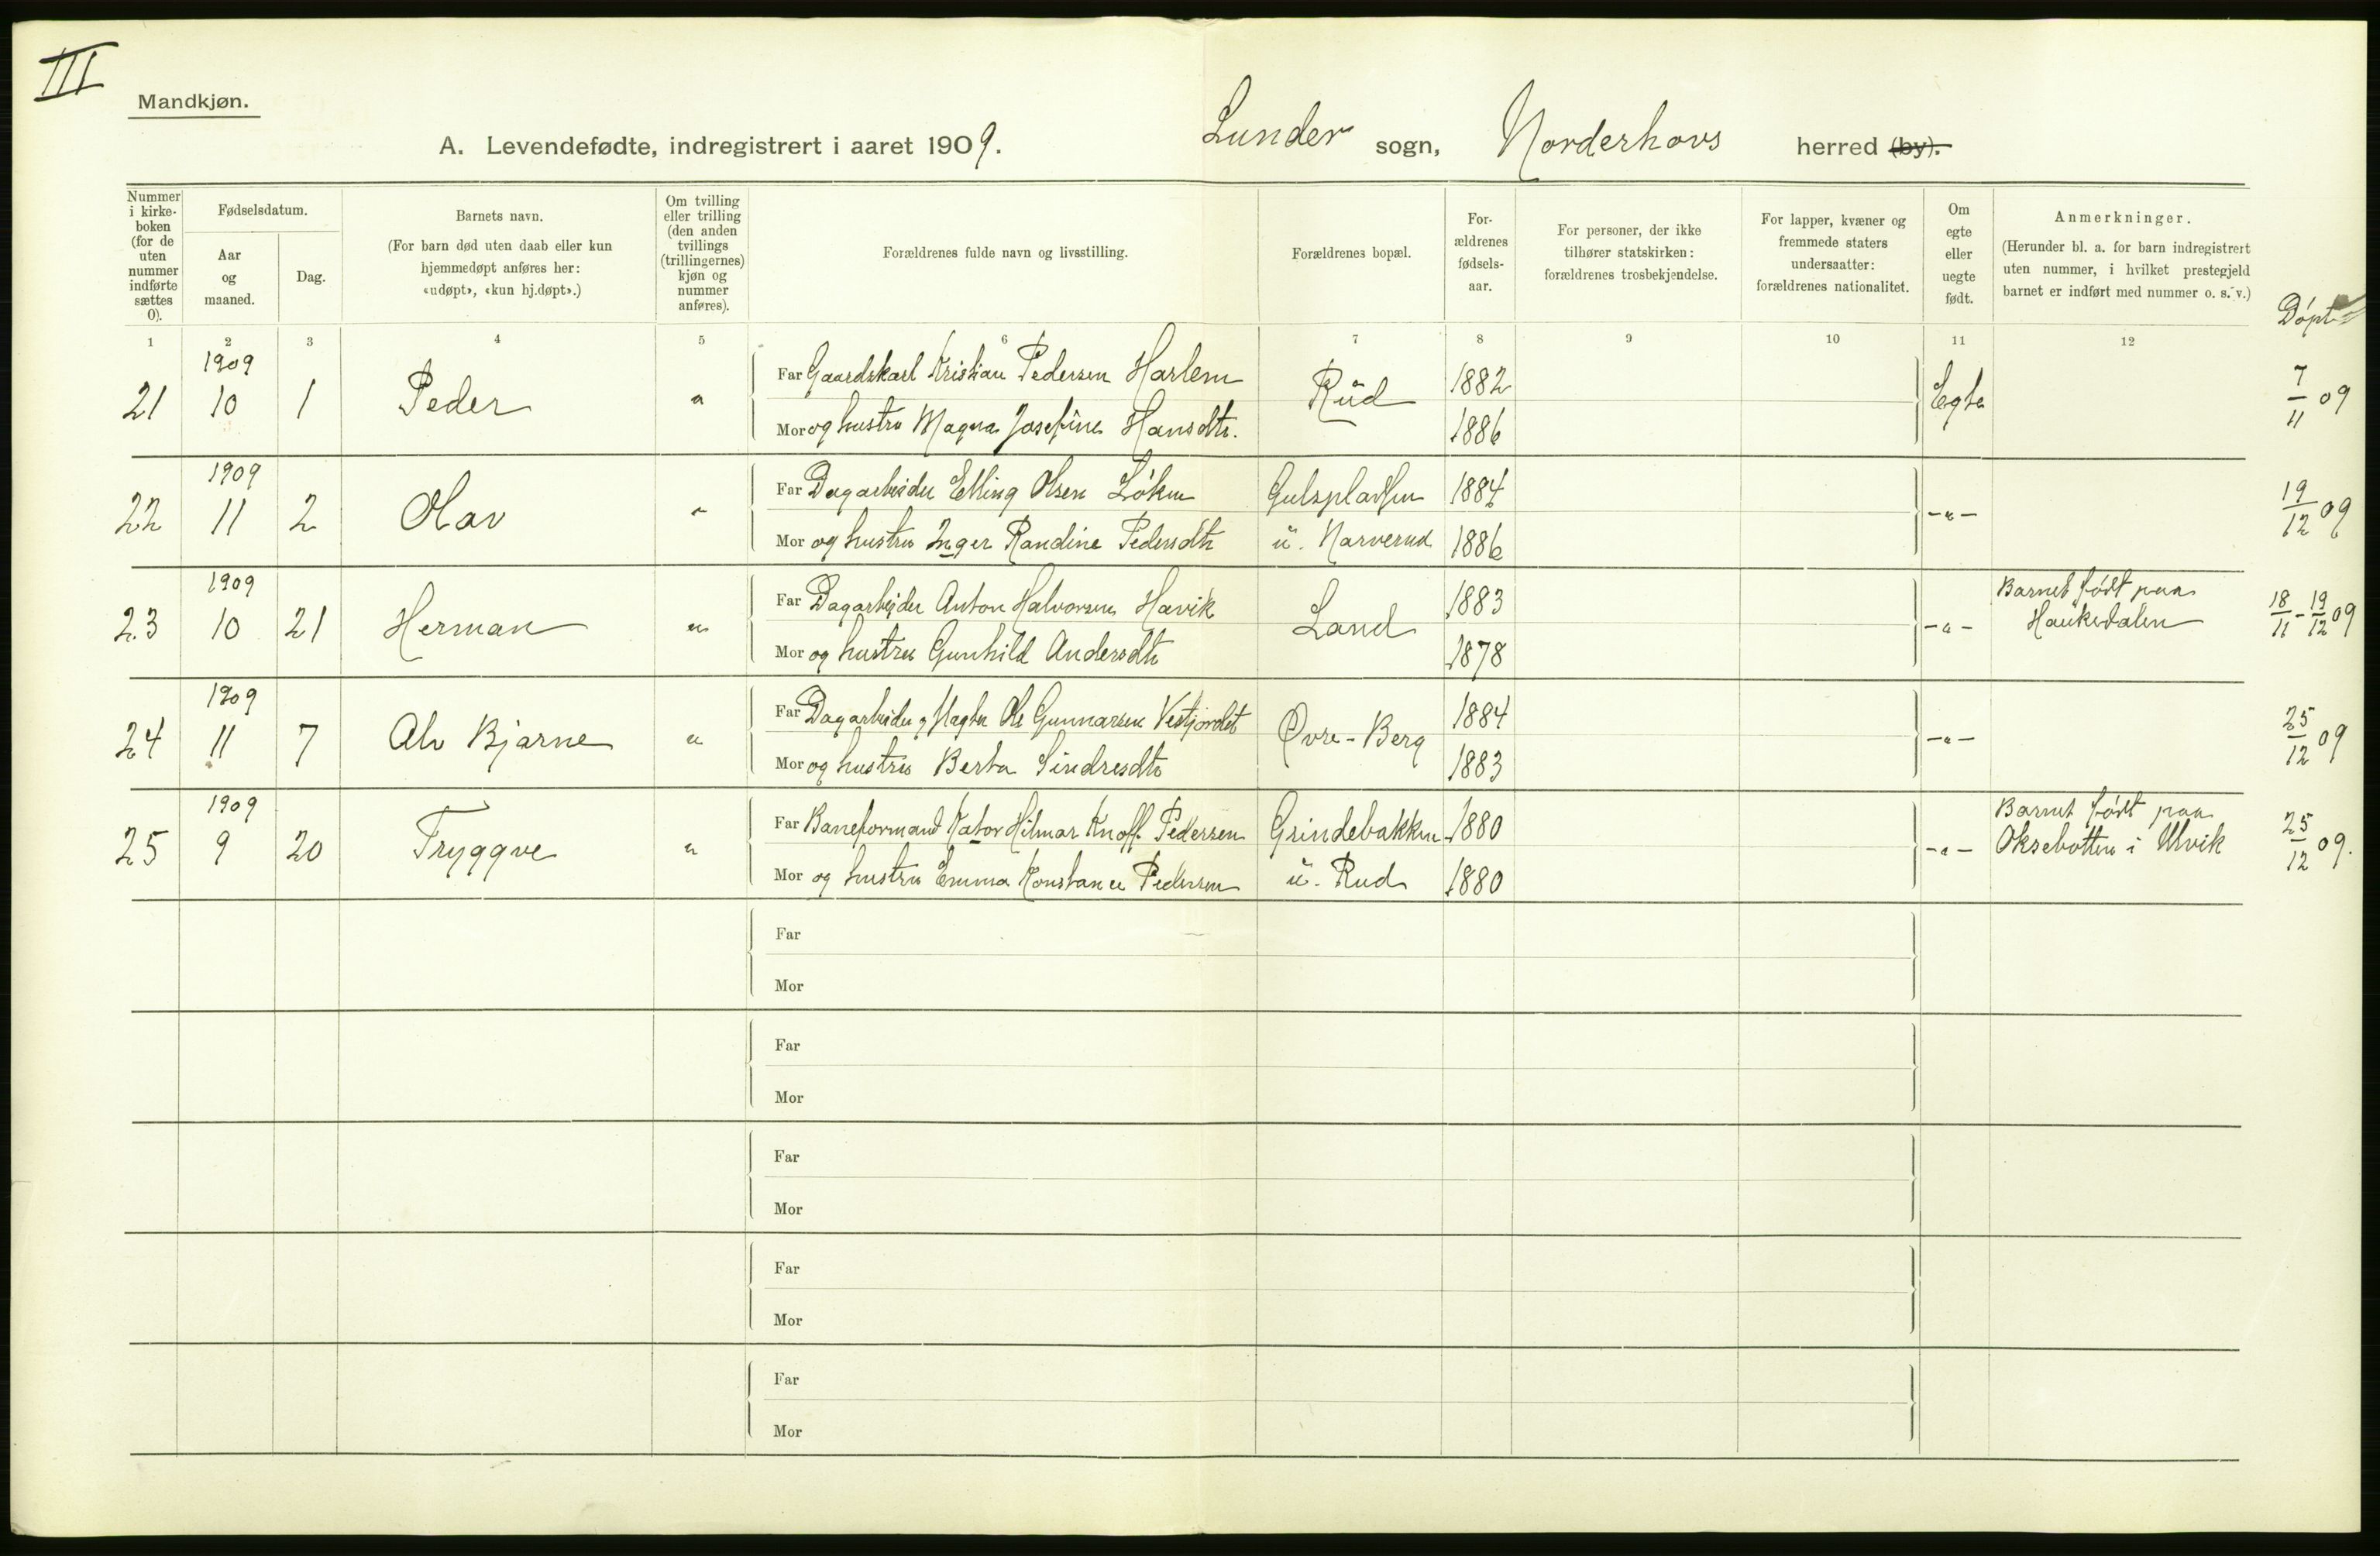 III
Mandkjøn.
A. Levendefødte, indregistrert i aaret 1909. Lunder sogn, Norderhovs herred (by).
Nummer i kirke-boken (for de uten nummer indførte sættes 0).
Fødselsdatum.
Aar og maaned.
Dag.
Barnets navn.
(For barn død uten daab eller kun hjemmedøpt anføres her: «udøpt», «kun hj.døpt».)
Om tvilling eller trilling (den anden tvillings (trillingernes) kjøn og nummer anføres).
Forældrenes fulde navn og livsstilling.
Forældrenes bopæl.
For-ældrenes fødsels-aar.
For personer, der ikke tilhører statskirken: forældrenes trosbekjendelse.
For lapper, kvæner og fremmede staters undersaatter: forældrenes nationalitet.
Om egte eller uegte født.
Anmerkninger.
(Herunder bl. a. for barn indregistrert uten nummer, i hvilket prestegjeld barnet er indført med nummer o. s. v.)
Døpt
1 2 3 4 5 6 7 8 9 10 11 12
1909
21 10 1 Peder " Far Gaardskarl Kristian Pedersen Harlem Rud 1882 Egte 7/11 09
Mor og hustru Magna Josefine Hansdtr. 1886
1909
22 11 2 Olav " Far Dagarbeider Elling Olsen Løken Gulspladsen 1884 -"- 19/12 09
Mor og hustru Inger Randine Pedersdtr u. Narverud 1886
1909
23 10 21 Herman " Far Dagarbeider Anton Halvorsen Havik Land 1883 -"- Barnet født paa Haukedalen 18/11 - 19/12 09
Mor og hustru Gunhild Andersdtr 1878
1909
24 11 7 Alv Bjarne " Far Dagarbeider og Ole Gunnarsen Vestjordet Øvre-Berg 1884 -"- 25/12 09
Mor og hustru Berta Sindresdtr 1883
1909
25 9 20 Tryggve " Far Baneformand Kator Hilmar Knoff Pedersen Grindebakken 1880 -"- Barnet født paa Oksebotten i Ulvik 25/12 09.
Mor og hustru Emma Konstance Pedersen u. Rud 1880
Far
Mor
Far
Mor
Far
Mor
Far
Mor
Far
Mor